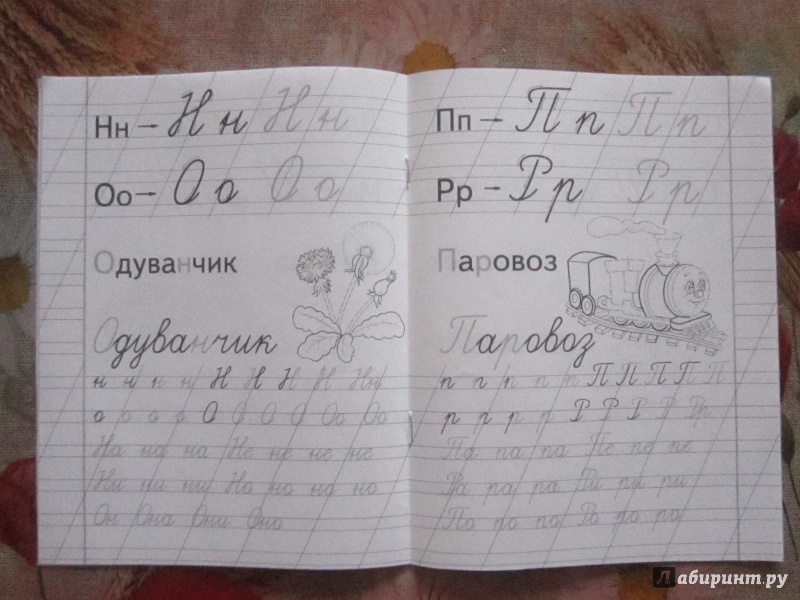 Нн – Н н Н н
Оо – О о О о
Одуванчик
Одуванчик
н н н н Н Н Н Н Нн
о о о о О О О О Оо Оо
На на на Не не не не
Ни ни ни Но но но но
Он Она Они Оно
Пп – П п П п
Рр – Р р Р р
Паровоз
Паровоз
п п п п п П П П П П
р р р р Р Р Р Р Рр
Па па па Пе пе пе
Ра ра ра Ри ри ри
По по по Ро ро ро
Лабиринт.ру